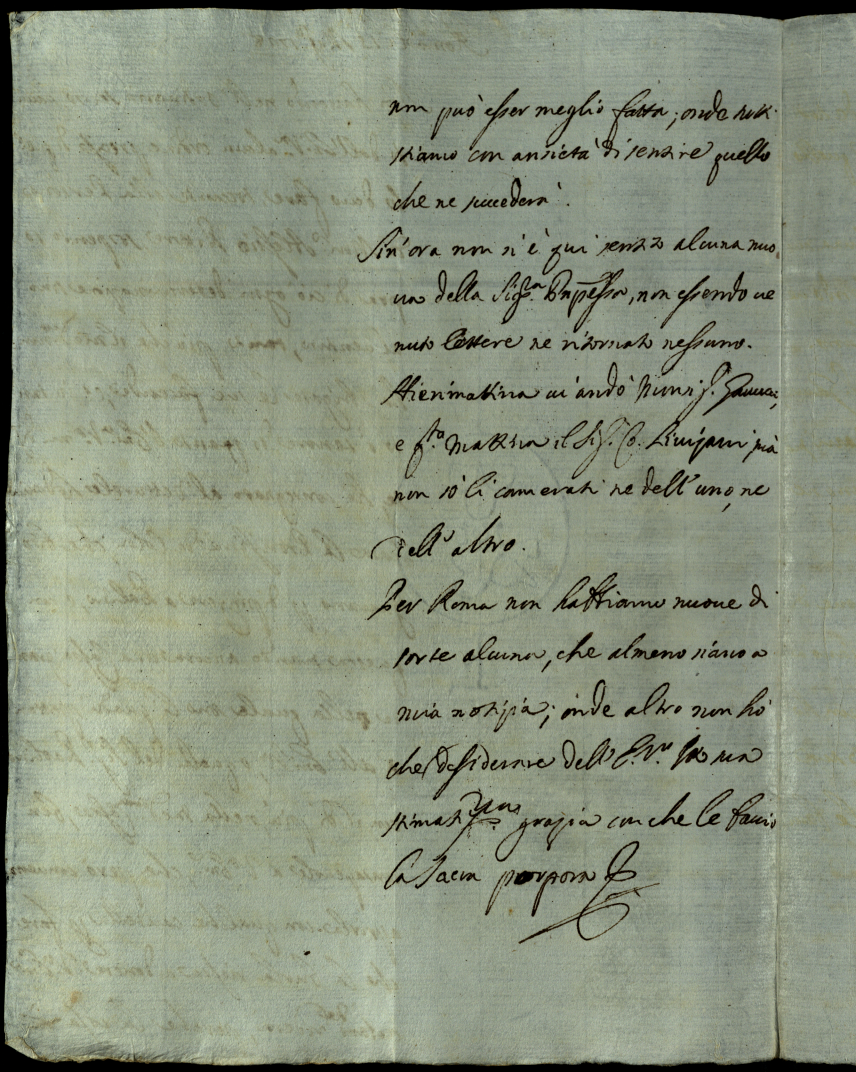 non può esser meglio fatta; onde
stiamo con ansietà di sentire quello
che ne succederà.
Sin'ora non si è qui sentito alcuna nuo
va della Sig.ra Pnpēssa, non essendo ve
nuto lettere ne ritornato nessuno.
Hierimattina vi andò Mons.r
e q.ta mattina il Sig. Co. ma
non sò li camerati ne dell'uno, ne
dell'altro.
Per Roma non habbiamo nuove di
sorte alcuna, che almeno siano a
mia notizia; onde altro non hò
che desiderare dell'E.V. la sua
stimatis.ma grazia con che le bacio
la Sacra porpora